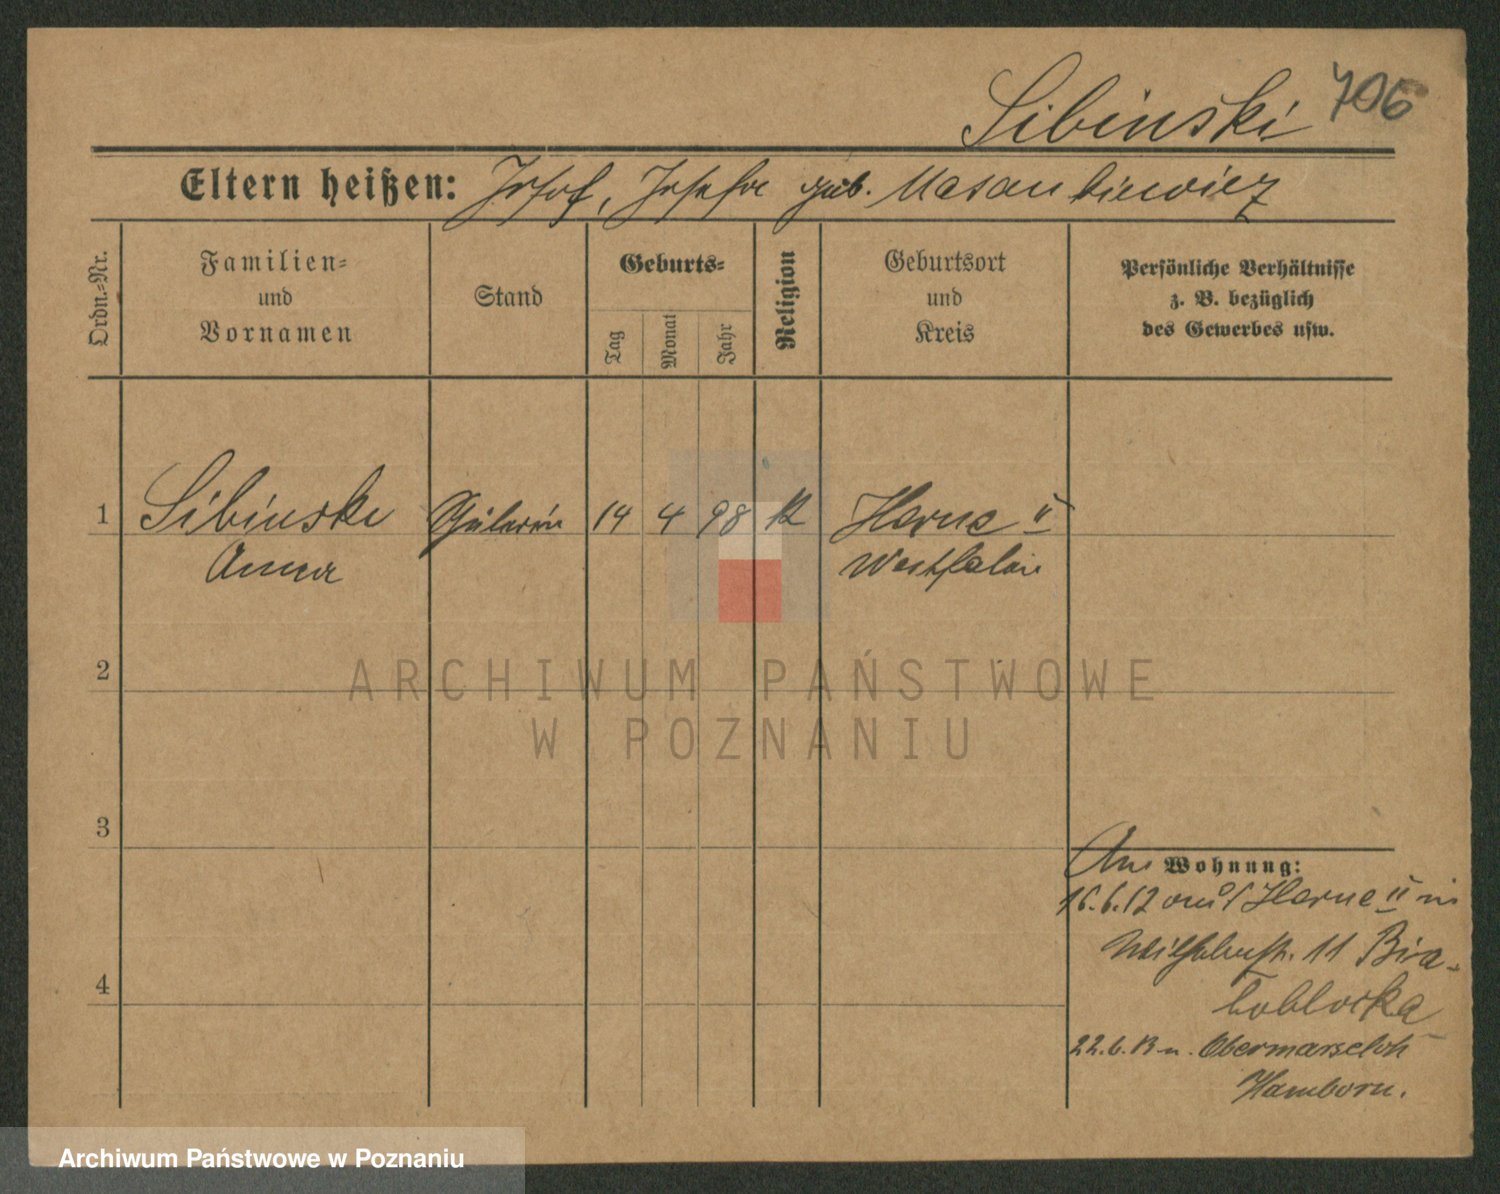 Sibinski 706
Eltern heißen: Josef, Josefa geb. Masankiewicz
Ordn.-Nr.
Familien-
und
Vornamen
Stand
Geburts-
Tag
Monat
Jahr
Religion
Geburtsort
und
Kreis
Persönliche Verhältnisse
z. B. bezüglich
des Gewerbes usw.
1 Sibinski Schülerin 14 4 98 K Herne II
Anna Westfalen
2
3
4
Am Wohnung:
16.6.12 aus Herne II in
11 Bia-
22.6.13 n. Obermarxloh
Hamborn.
ARCHIWUM PAŃSTWOWE
W POZNANIU
Archiwum Państwowe w Poznaniu